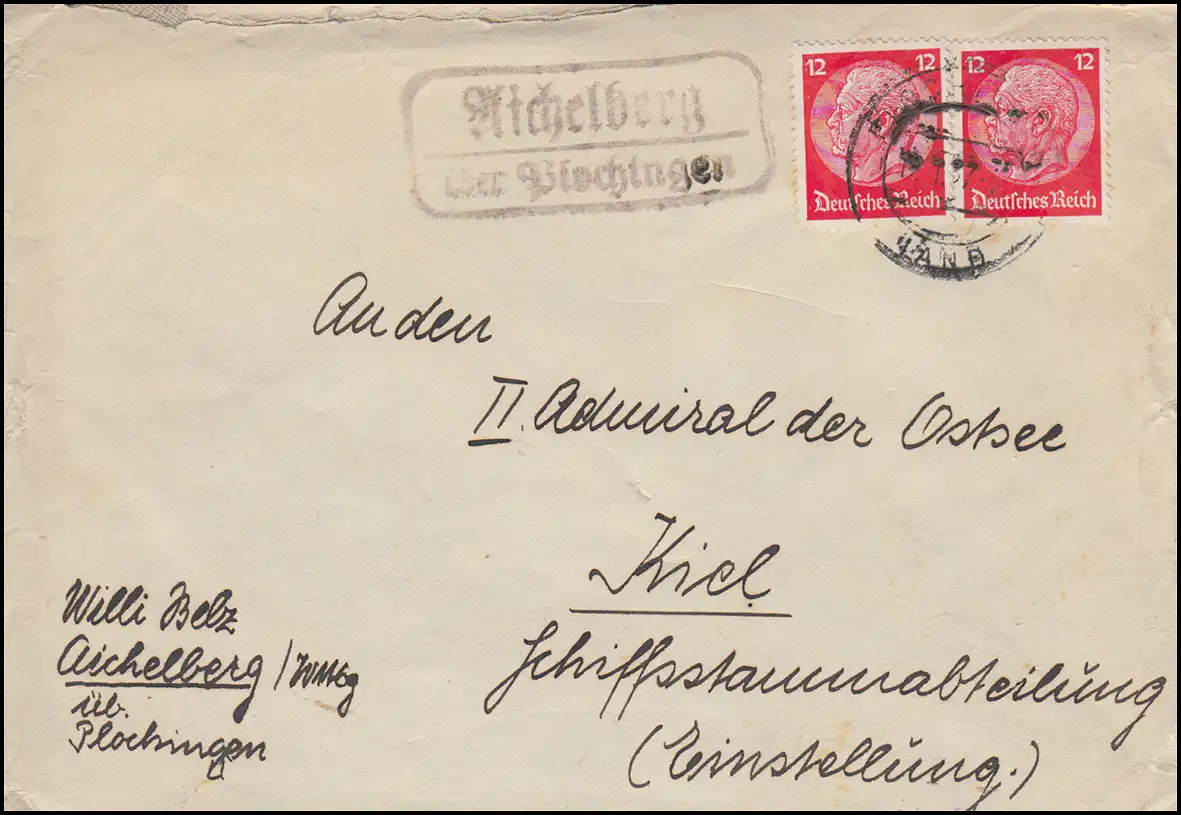 Aichelberg
über Plochingen
12 12
12 12
Deutsches Reich
Deutsches Reich
LAND
An den
II. Admiral der Ostsee
Kiel
Schiffsstammabteilung
(Einstellung.)
Willi Belz
Aichelberg / Wttbg
üb.
Plochingen